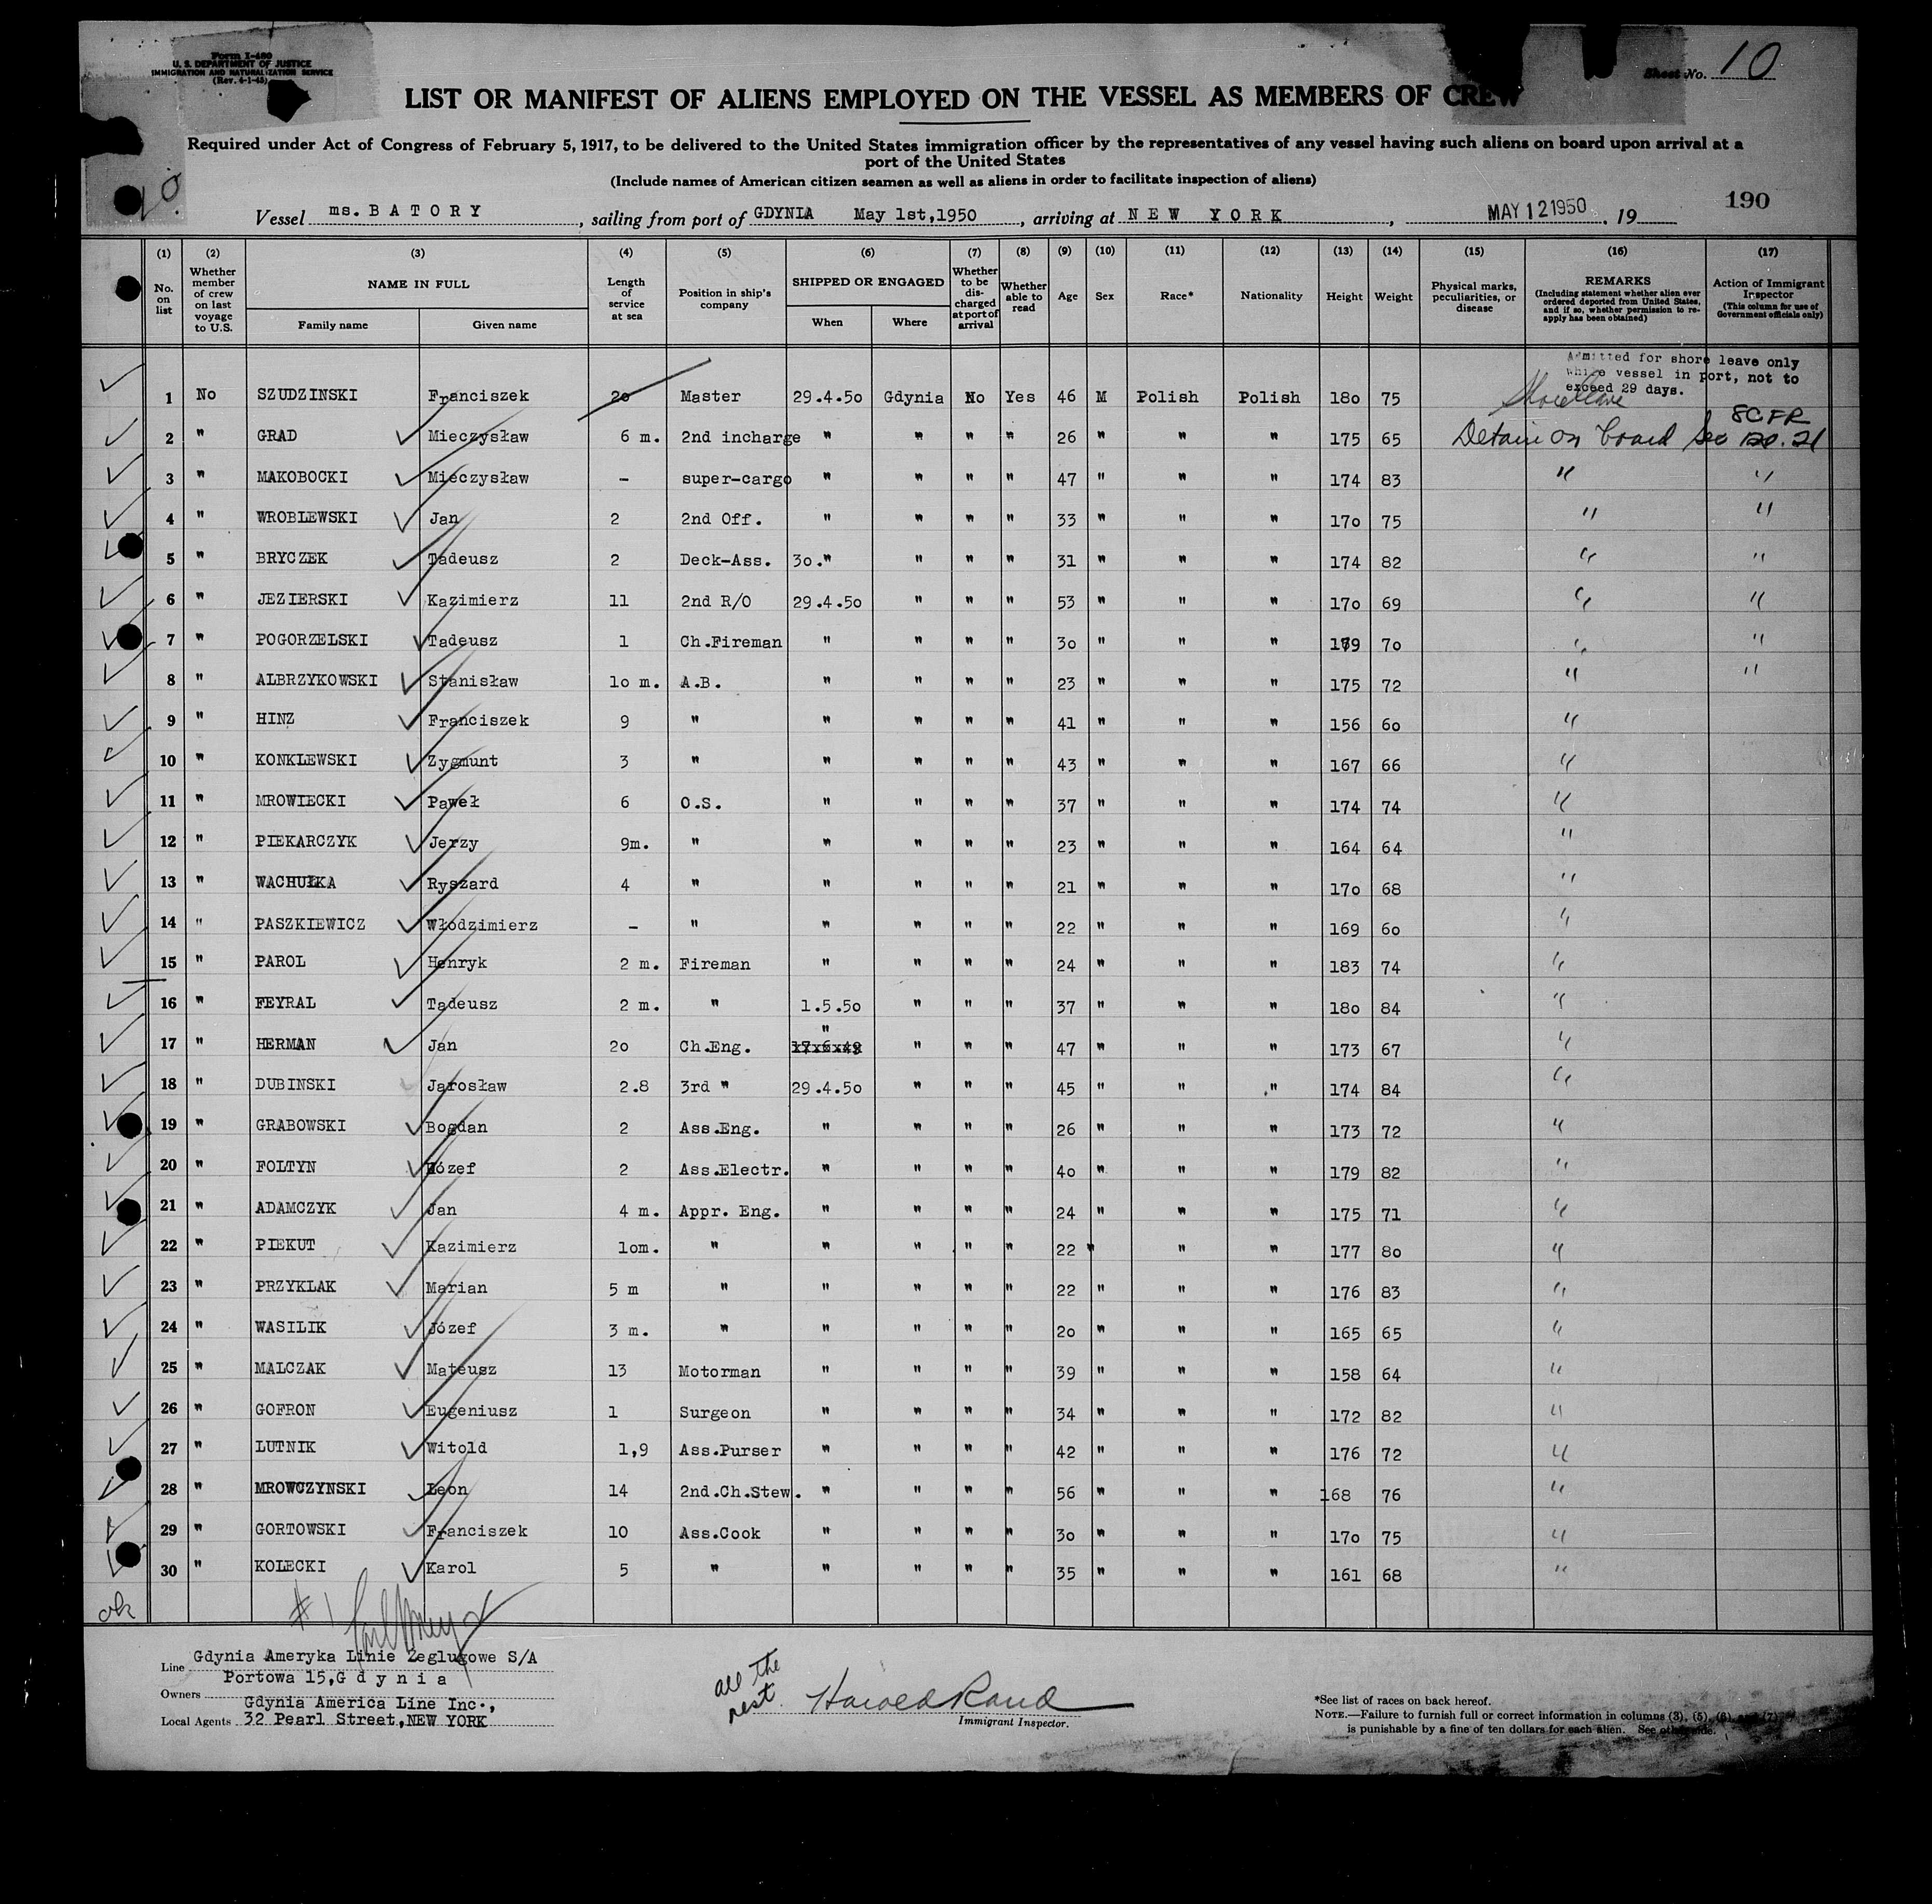 Form I-480
U. S. DEPARTMENT OF JUSTICE
IMMIGRATION AND NATURALIZATION SERVICE
(Rev. 4-1-45)
Sheet No. 10
LIST OR MANIFEST OF ALIENS EMPLOYED ON THE VESSEL AS MEMBERS OF CREW
Required under Act of Congress of February 5, 1917, to be delivered to the United States immigration officer by the representatives of any vessel having such aliens on board upon arrival at a
port of the United States
(Include names of American citizen seamen as well as aliens in order to facilitate inspection of aliens)
10.
190
Vessel ms. B A T O R Y, sailing from port of GDYNIA May 1st,1950, arriving at N E W Y O R K, MAY 12 1950, 19
(1) No. on list
(2) Whether member of crew on last voyage to U.S.
(3) NAME IN FULL Family name Given name
(4) Length of service at sea
(5) Position in ship's company
(6) SHIPPED OR ENGAGED When Where
(7) Whether to be discharged at port of arrival
(8) Whether able to read
(9) Age
(10) Sex
(11) Race*
(12) Nationality
(13) Height
(14) Weight
(15) Physical marks, peculiarities, or disease
(16) REMARKS (Including statement whether alien ever ordered deported from United States, and if so, whether permission to re-apply has been obtained)
(17) Action of Immigrant Inspector (This column for use of Government officials only)
Admitted for shore leave only
while vessel in port, not to
exceed 29 days.
1 No SZUDZINSKI Franciszek 20 Master 29.4.50 Gdynia No Yes 46 M Polish Polish 180 75 Shore leave
8 CFR
2 " GRAD Mieczysław 6 m. 2nd incharge " " " " 26 " " " 175 65 Detain on board Sec 120.21
3 " MAKOBOCKI Mieczysław - super-cargo " " " " 47 " " " 174 83 " "
4 " WROBLEWSKI Jan 2 2nd Off. " " " " 33 " " " 170 75 " "
5 " BRYCZEK Tadeusz 2 Deck-Ass. 30." " " " 31 " " " 174 82 " "
6 " JEZIERSKI Kazimierz 11 2nd R/O 29.4.50 " " " 53 " " " 170 69 " "
7 " POGORZELSKI Tadeusz 1 Ch.Fireman " " " " 30 " " " 179 70 " "
8 " ALBRZYKOWSKI Stanisław 10 m. A.B. " " " " 23 " " " 175 72 " "
9 " HINZ Franciszek 9 " " " " " 41 " " " 156 60 "
10 " KONKLEWSKI Zygmunt 3 " " " " " 43 " " " 167 66 "
11 " MROWIECKI Paweł 6 O.S. " " " " 37 " " " 174 74 "
12 " PIEKARCZYK Jerzy 9m. " " " " " 23 " " " 164 64 "
13 " WACHUŁKA Ryszard 4 " " " " " 21 " " " 170 68 "
14 " PASZKIEWICZ Włodzimierz - " " " " " 22 " " " 169 60 "
15 " PAROL Henryk 2 m. Fireman " " " " 24 " " " 183 74 "
16 " FEYRAL Tadeusz 2 m. " 1.5.50 " " " 37 " " " 180 84 "
17 " HERMAN Jan 20 Ch.Eng. " " " " 47 " " " 173 67 "
18 " DUBINSKI Jarosław 2.8 3rd " 29.4.50 " " " 45 " " " 174 84 "
19 " GRABOWSKI Bogdan 2 Ass.Eng. " " " " 26 " " " 173 72 "
20 " FOLTYN Józef 2 Ass.Electr. " " " " 40 " " " 179 82 "
21 " ADAMCZYK Jan 4 m. Appr. Eng. " " " " 24 " " " 175 71 "
22 " PIEKUT Kazimierz 10m. " " " " " 22 " " " 177 80 "
23 " PRZYKLAK Marian 5 m " " " " " 22 " " " 176 83 "
24 " WASILIK Józef 3 m. " " " " " 20 " " " 165 65 "
25 " MALCZAK Mateusz 13 Motorman " " " " 39 " " " 158 64 "
26 " GOFRON Eugeniusz 1 Surgeon " " " " 34 " " " 172 82 "
27 " LUTNIK Witold 1,9 Ass.Purser " " " " 42 " " " 176 72 "
28 " MROWCZYNSKI Leon 14 2nd.Ch.Stew. " " " " 56 " " " 168 76 "
29 " GORTOWSKI Franciszek 10 Ass.Cook " " " " 30 " " " 170 75 "
30 " KOLECKI Karol 5 " " " " " 35 " " " 161 68 "
ok
# 1
Line Gdynia Ameryka Linie Zeglugowe S/A
Portowa 15,G d y n i a
Owners
Gdynia America Line Inc.,
Local Agents 32 Pearl Street,NEW YORK
all the
rest
Harold Rand
Immigrant Inspector.
*See list of races on back hereof.
NOTE.—Failure to furnish full or correct information in columns (3), (5), (6), and (7)
is punishable by a fine of ten dollars for each alien. See other side.